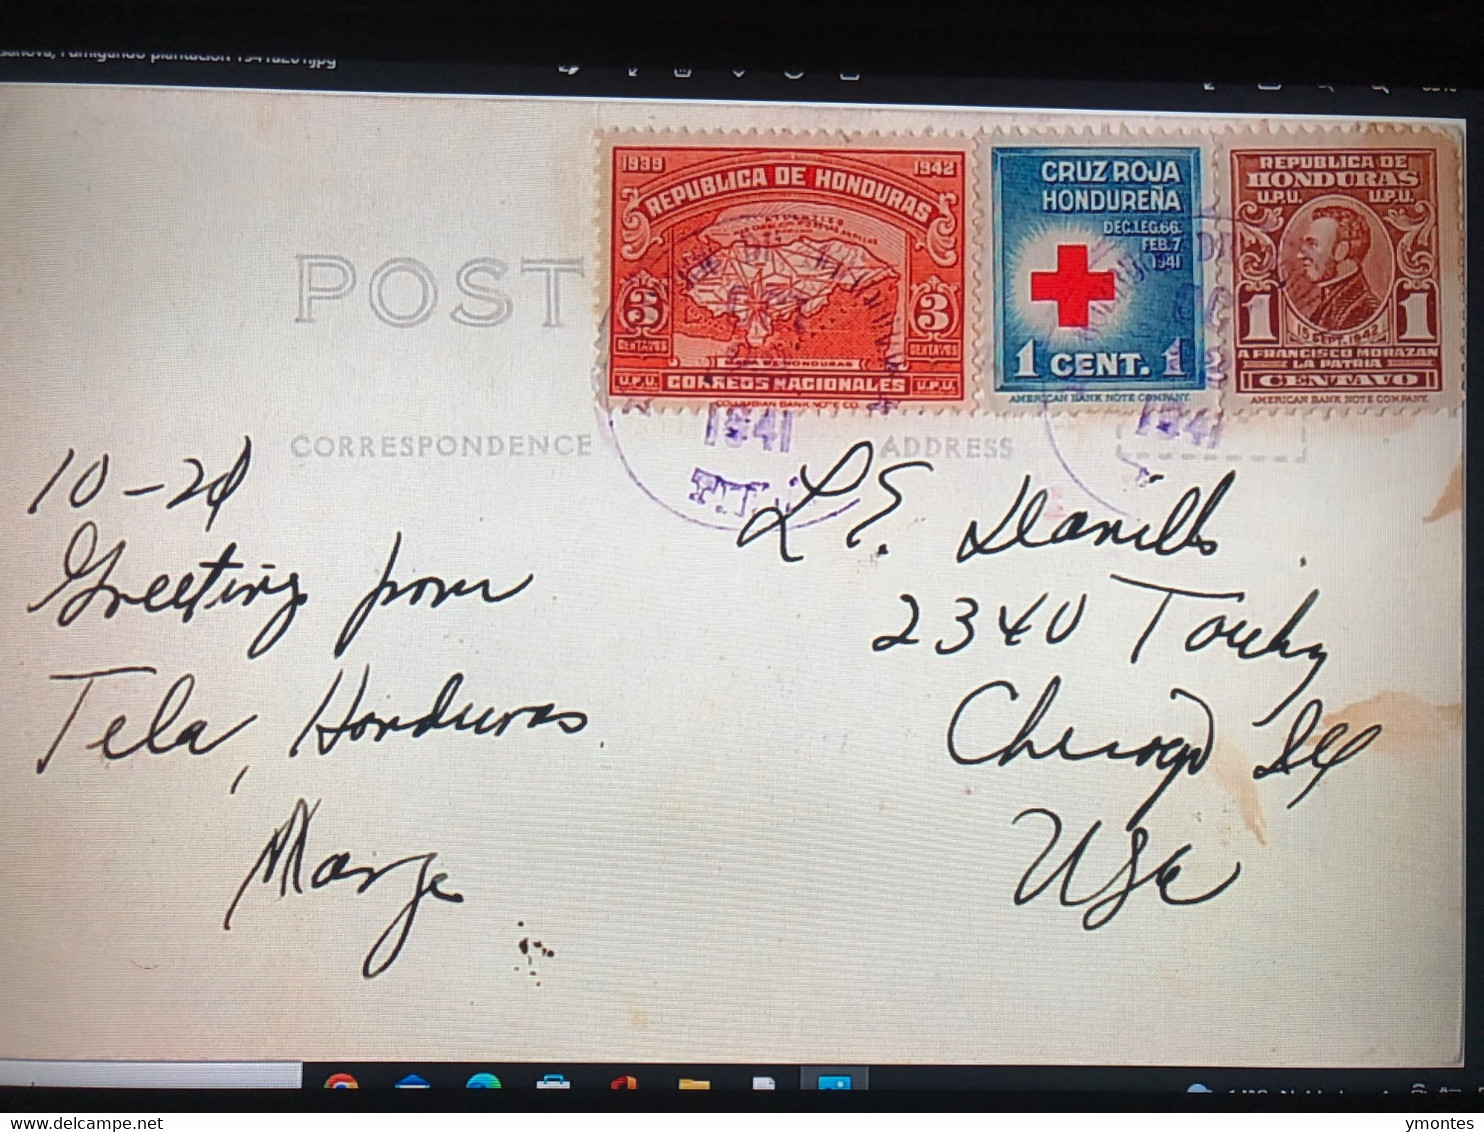 plantacion 1941a201.jpg
1939 1942
REPUBLICA DE HONDURAS
3 3
CENTAVOS CENTAVOS
U.P.U. CORREOS NACIONALES U.P.U.
COLUMBIAN BANK NOTE CO.
CRUZ ROJA
HONDUREÑA
DEC.LEG.66.
FEB.7
1941
1 CENT. 1
AMERICAN BANK NOTE COMPANY.
REPUBLICA DE
HONDURAS
U.P.U. U.P.U.
1 1
15 SEPT. 1842
A FRANCISCO MORAZAN
LA PATRIA
1 CENTAVO 1
AMERICAN BANK NOTE COMPANY.
1941
1941
POST
CORRESPONDENCE
ADDRESS
10-24
Greeting from
Tela, Honduras.
Marge
L.E. Daniells
2340 Touhy
Chicago Ill
USA
delcampe.net
ymontes